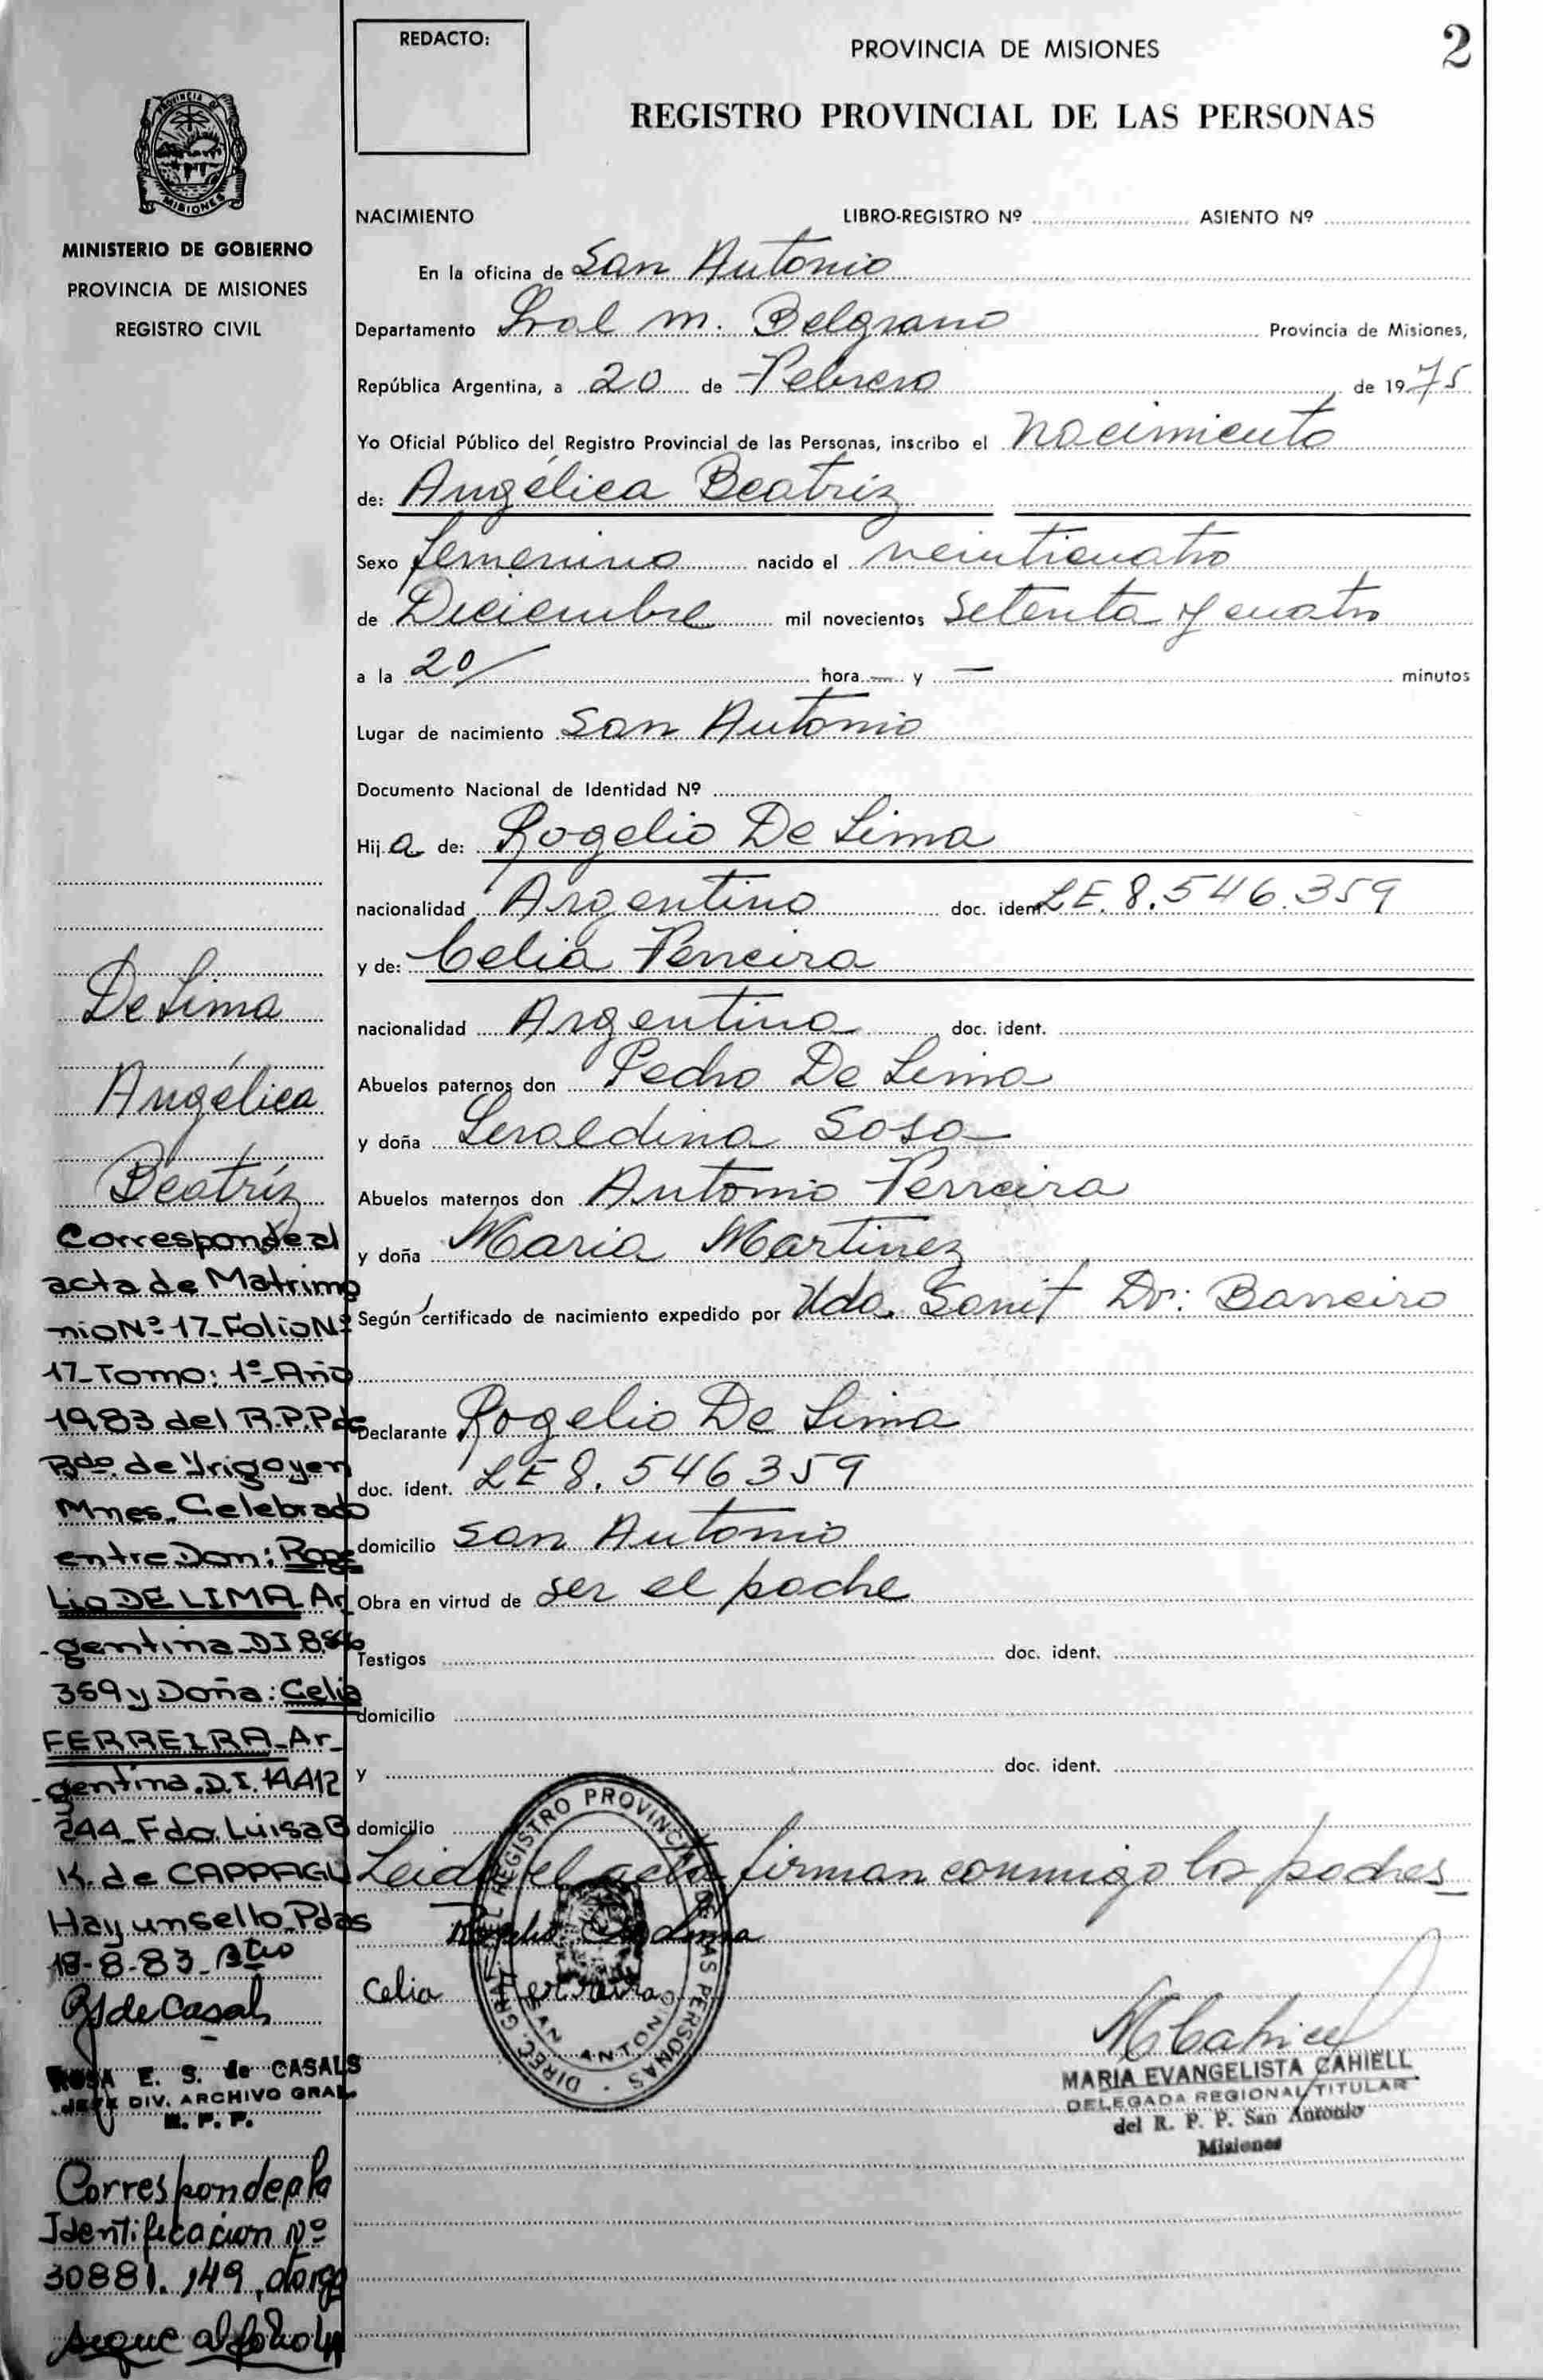 REDACTO:
PROVINCIA DE MISIONES
2
REGISTRO PROVINCIAL DE LAS PERSONAS
PROVINCIA DE
MISIONES
MINISTERIO DE GOBIERNO
PROVINCIA DE MISIONES
REGISTRO CIVIL
NACIMIENTO LIBRO-REGISTRO Nº ASIENTO Nº
En la oficina de San Antonio
Departamento Gral M. Belgrano Provincia de Misiones,
República Argentina, a 20 de Febrero de 1975
Yo Oficial Público del Registro Provincial de las Personas, inscribo el Nacimiento
de: Angélica Beatriz
Sexo femenino nacido el veinticuatro
de Diciembre mil novecientos setenta y cuatro
a la 20/ hora — y — minutos
Lugar de nacimiento San Antonio
Documento Nacional de Identidad Nº
Hija de: Rogelio De Lima
nacionalidad Argentino doc. ident. LE. 8.546.359
y de: Celia Ferreira
nacionalidad Argentina doc. ident.
Abuelos paternos don Pedro De Lima
y doña Geraldina Sosa
Abuelos maternos don Antonio Ferreira
y doña Maria Martinez
Según certificado de nacimiento expedido por Uda. Sanit Dr: Barreiro
Declarante Rogelio De Lima
doc. ident. LE 8.546359
domicilio San Antonio
Obra en virtud de ser el padre
Testigos doc. ident.
domicilio
y doc. ident.
domicilio
Leida el acta firman conmigo los padres
Rogelio De Lima
Celia Ferreira
DIREC. GRAL. DEL REGISTRO PROVINCIAL DE LAS PERSONAS
SAN ANTONIO
MARIA EVANGELISTA CAHIELL
DELEGADA REGIONAL TITULAR
del R. P. P. San Antonio
Misiones
De Lima
Angélica
Beatríz
Corresponde al
acta de Matrimo
nio Nº 17 Folio Nº
17 Tomo: 1º Año
1983 del R.P.P de
Bdo. de Yrigoyen
Mnes. Celebrado
entre Don: Roge
Lio DE LIMA Ar
gentina DI 8.546
359 y Doña: Celia
FERREIRA Ar
gentina. D.I. 14.412
244 Fdo. Luisa B
K. de CAPPAGLI
Hay un sello Pdas
18-8-83
R S de Casals
ROSA E. S. de CASALS
JEFE DIV. ARCHIVO GRAL.
R. P. P.
Corresponde a la
Identificacion Nº
30881.149, otorga
sigue al folio 4